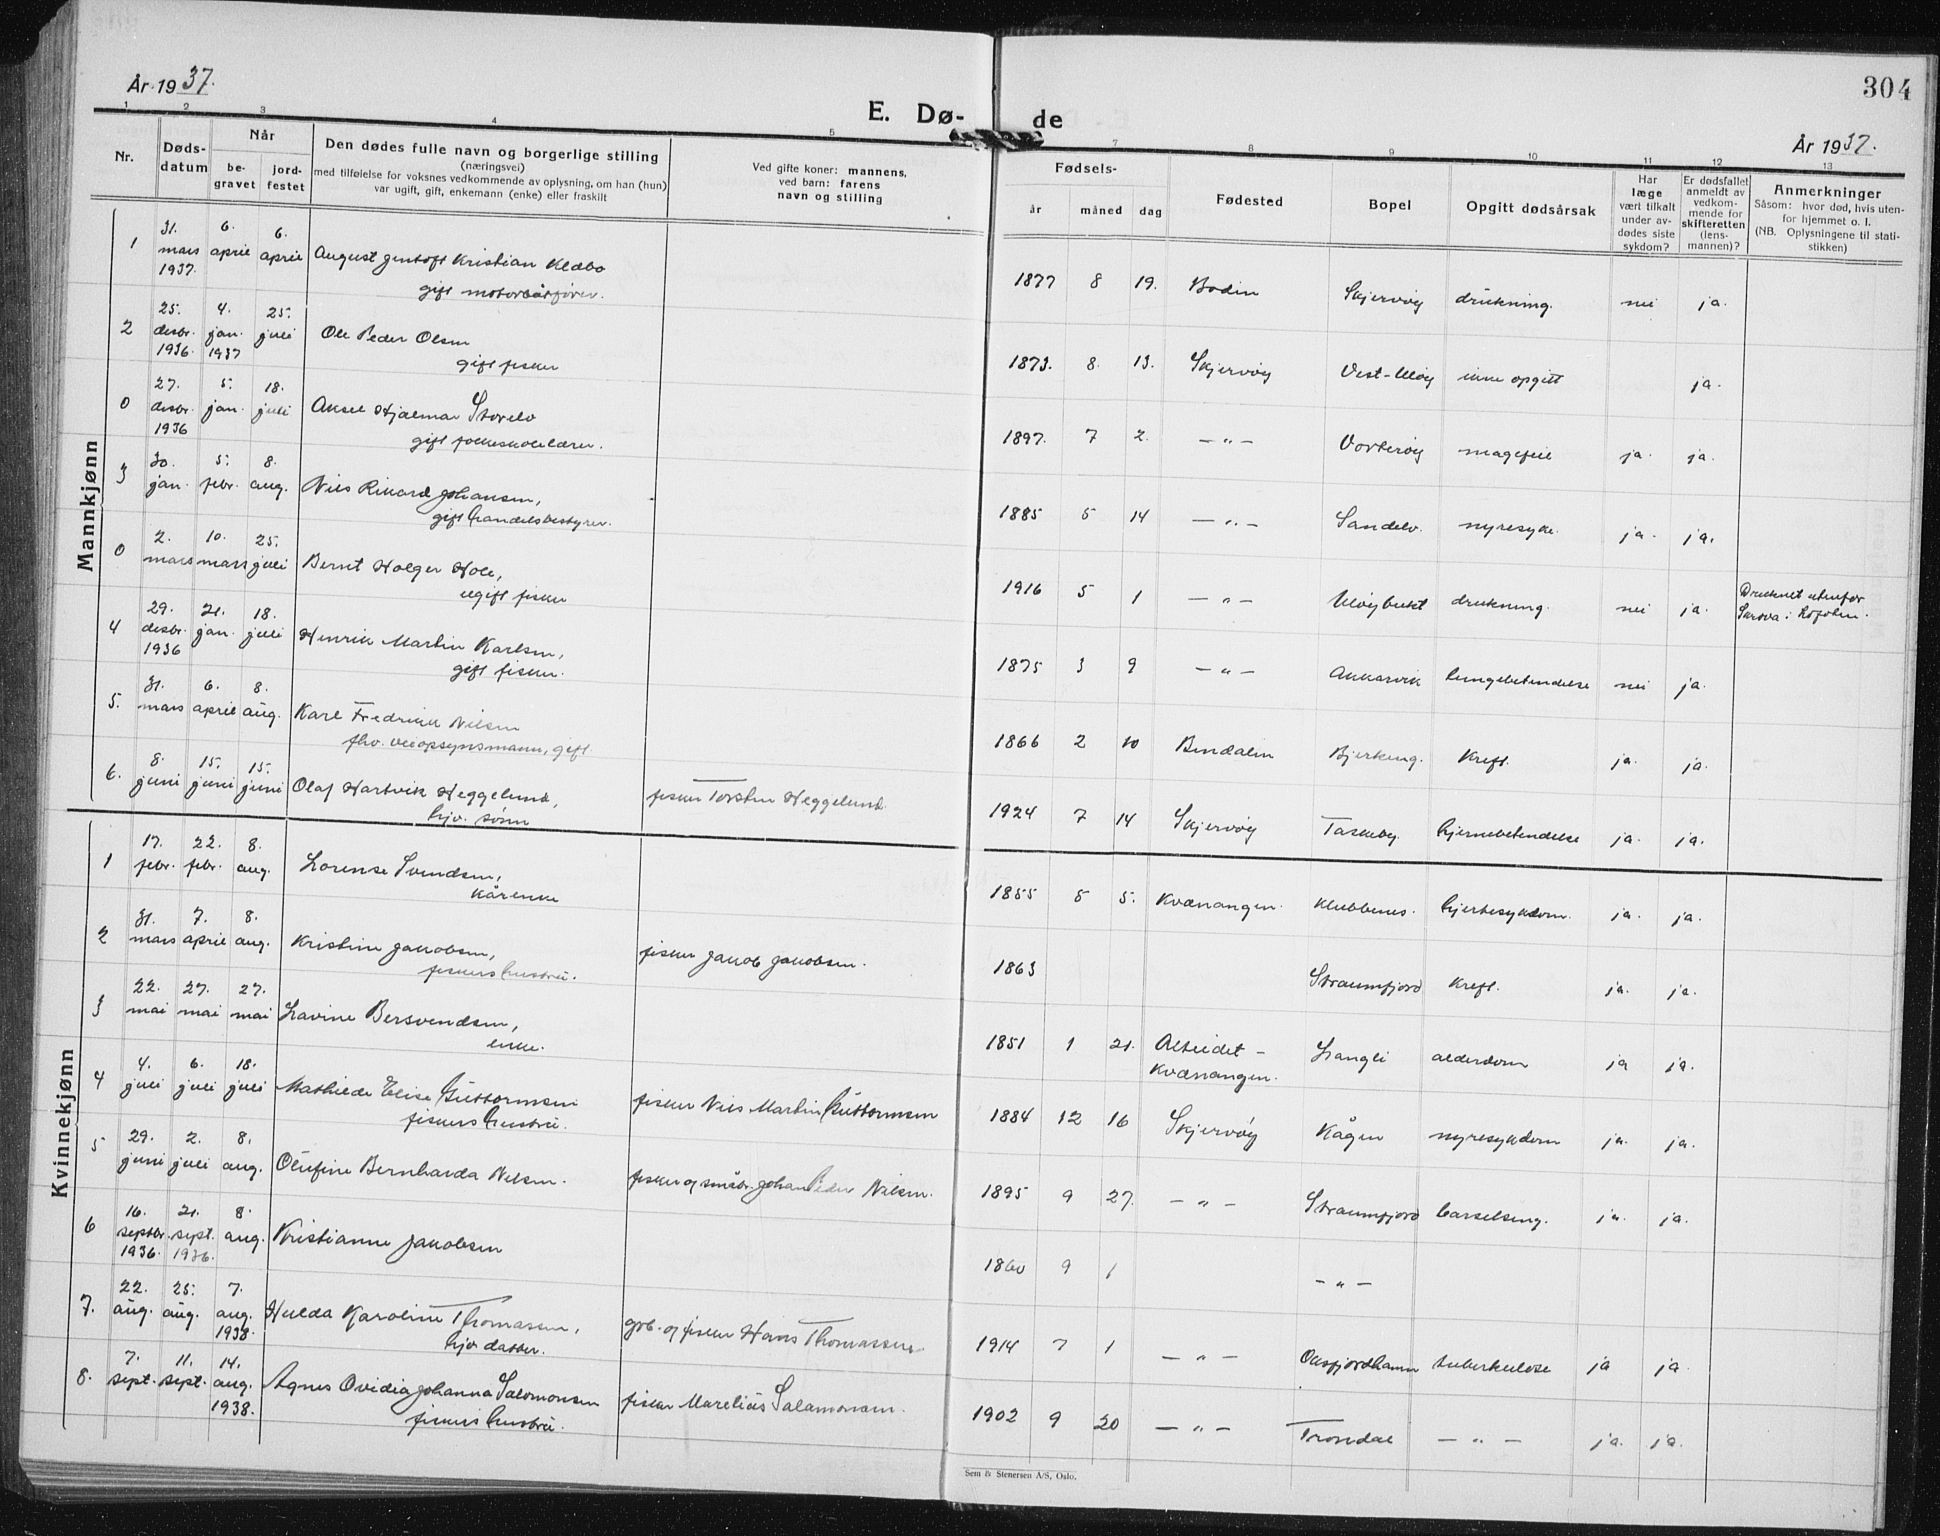 År 1937.
304
E. Dø-
de
År 1937.
1 2 3 4 5 7 8 9 10 11 12 13
Nr.
Døds-
datum
Når
be-
gravet
jord-
festet
Den dødes fulle navn og borgerlige stilling
(næringsvei)
med tilføielse for voksnes vedkommende av oplysning, om han (hun)
var ugift, gift, enkemann (enke) eller fraskilt
Ved gifte koner: mannens,
ved barn: farens
navn og stilling
Fødsels-
år måned dag
Fødested
Bopel
Opgitt dødsårsak
Har
læge
vært tilkalt
under av-
dødes siste
sykdom?
Er dødsfallet
anmeldt av
vedkom-
mende for
skifteretten
(lens-
mannen)?
Anmerkninger
Såsom: hvor død, hvis uten-
for hjemmet o. l.
(NB. Oplysningene til stati-
stikken)
Mannkjønn
1 31. mars 1937. 6. april 6. april August Gentoft Kristian Klæbo
gift motorbåtfører.
1877 8 19. Bodin Skjervøy drukning. nei ja.
2 25. desbr. 1936. 4. jan. 1937 25. juli Ole Peder Olsen
gift fisker
1873. 8. 13. Skjervøy Vest-Uløy ikke opgitt ja.
0 27. desbr. 1936 5. jan. 18. juli Aksel Hjalmar Storelv
gift folkeskolelærer.
1897. 7 2. — " — Vorterøy magefeil ja. ja.
3 30. jan. 5. febr. 8. aug. Nils Rikard Johansen,
gift handelsbestyrer.
1885 5 14 — " — Sandelv. nyresyke. ja. ja.
0 2. mars 10. mars 25. juli Bernt Holger Hole,
ugift fisker
1916 5 1 — " — Uløybukt drukning. nei ja. Druknet utenfor
i Lofoten.
4 29. desbr. 1936 21. jan. 18. juli Henrik Martin Karlsen,
gift fisker.
1875 3 9 — " — Akkarvik lungebetendelse nei ja.
5. 31. mars 6. april 8. aug. Karl Fredrik Nilsen
fhv. veiopsynsmann, gift.
1866 2 10 Bindalen Bjerkeng. Kreft. ja. ja.
6. 8. juni 15. juni 15. juni Olaf Hartvik Heggelund,
hjv. sønn
fisker Torsten Heggelund.
1924 7 14 Skjervøy Taskeby. hjernebetendelse ja. ja.
Kvinnekjønn
1 17. febr. 22. febr. 8. aug. Lorense Svendsen,
kårenke
1855 5 5. Kvænangen. Klubbenes. hjertesykdom. ja. ja.
2 31. mars 7. april 8. aug. Kristine Jakobsen,
fiskers hustru.
fisker Jakob Jakobsen.
1863 Straumfjord Kreft. ja. ja.
3 22. mai 27. mai 27. mai Lavine Bersvendsen,
enke.
1851 1 21. Alteidet –
Kvænangen. Langli alderdom ja ja.
4 4. juli 6. juli 18. juli Mathilde Elise Guttormsen
fiskers hustru.
fisker Nils Martin Guttormsen
1884 12 16 Skjervøy Kågen nyresykdom ja. ja.
5 29. juni 2. juli 8. aug. Olufine Bernharda Nilsen.
fisker og småbr. Johan Peder Nilsen.
1895 9 27. — " — Straumfjord barselseng. ja. ja.
6 16. septbr. 1936. 21. sept. 1936. 8. aug. Kristianne Jakobsen
1860 9 1 — " —
7. 22. aug. 25. aug. 7. aug. 1938. Hulda Karoline Thomassen,
hjv. datter.
grb. og fisker Hans Thomassen.
1914 7 1 — " — Oksfjordhamn tuberkulose ja ja.
8. 7. sept. 11. sept. 14. aug. 1938. Agnes Ovidia Johanna Salomonsen
fiskers hustru.
fisker Marelius Salamonsen.
1902 9 20 — " — Trondal — " — ja. ja.
Sem & Stenersen A/S, Oslo.